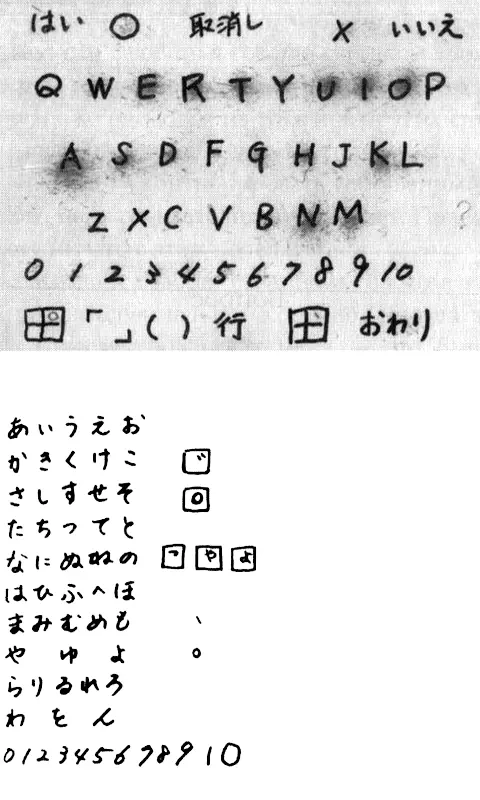 はい ○ 取消し × いいえ
Q W E R T Y U I O P
A S D F G H J K L
Z X C V B N M ?
0 1 2 3 4 5 6 7 8 9 10
「 」 ( ) 行 おわり
あいうえお
かきくけこ ゛
さしすせそ ゜
たちつてと
なにぬねの っ ゃ ょ
はひふへほ
まみむめも 、
や ゆ よ 。
らりるれろ
わ を ん
0 1 2 3 4 5 6 7 8 9 10